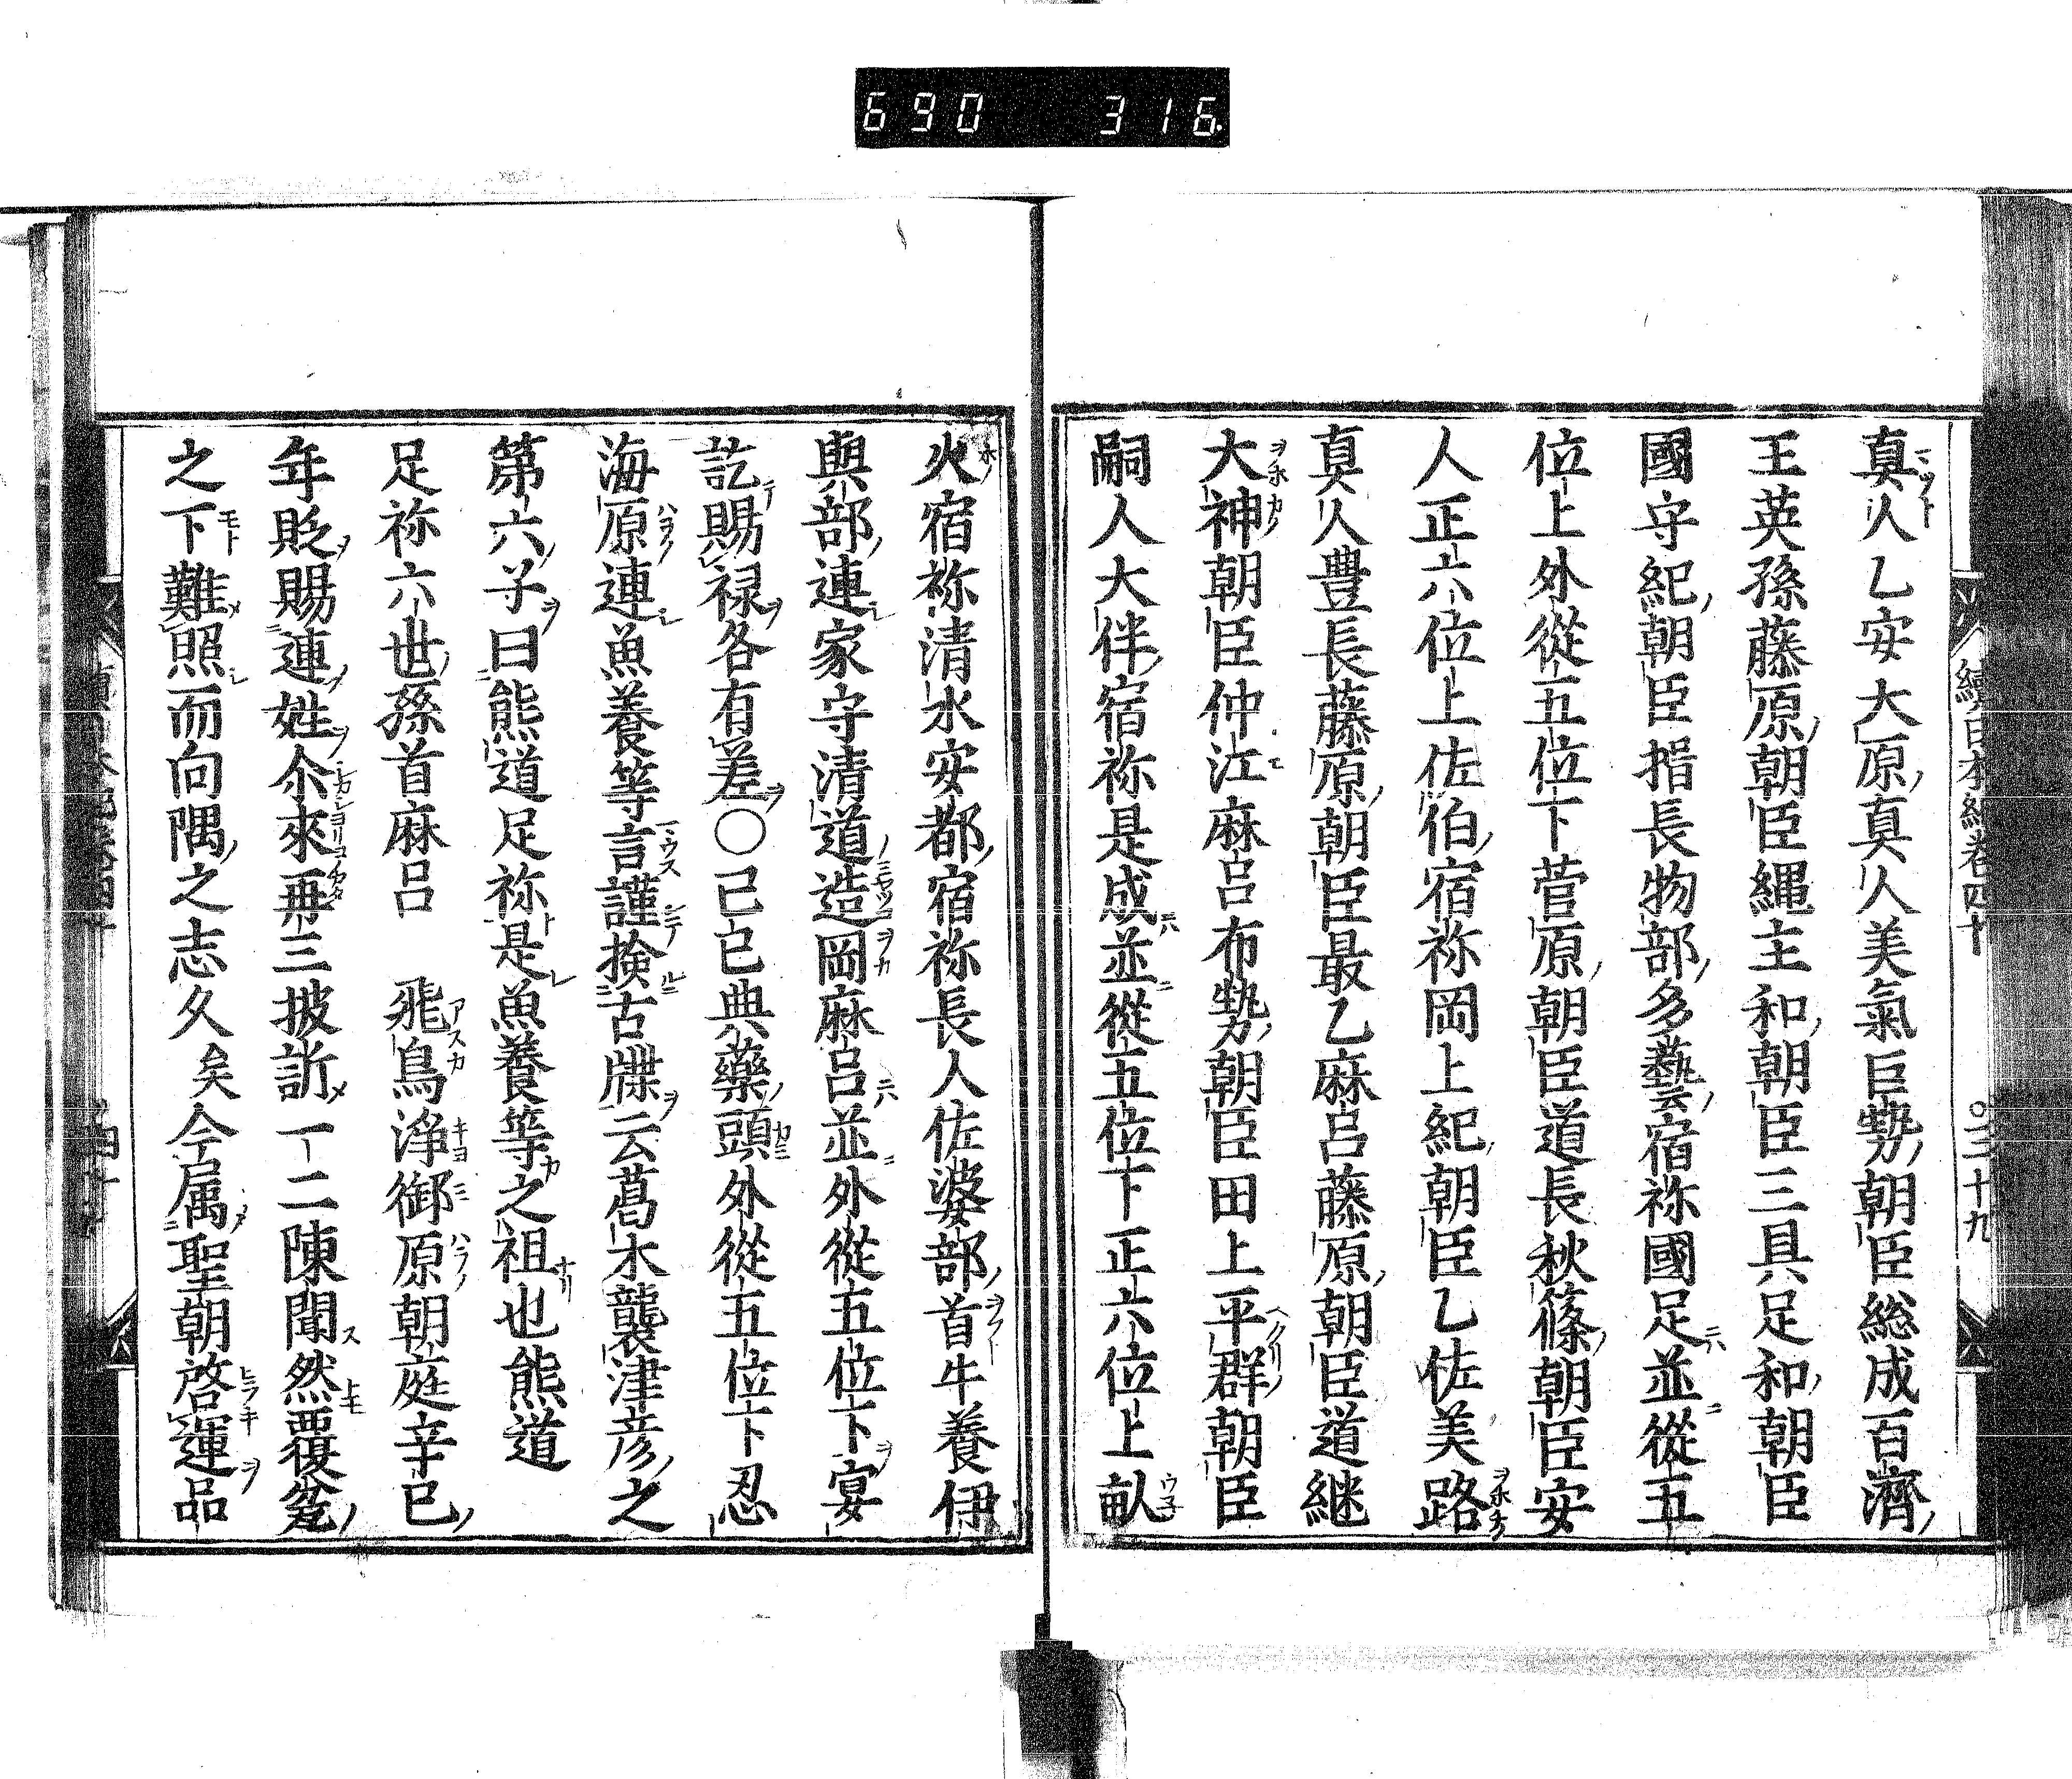 690 316
續日本紀卷四十 〇三十九
真人乙安大原真人美氣巨勢朝臣総成百濟
王英孫藤原朝臣縄主和朝臣三具足和朝臣
國守紀朝臣指長物部多藝宿祢國足並從五
位上外從五位下菅原朝臣道長秋篠朝臣安
人正六位上佐伯宿祢岡上紀朝臣乙佐美路
真人豊長藤原朝臣最乙麻呂藤原朝臣道継
大神朝臣仲江麻呂布勢朝臣田上平群朝臣
嗣人大伴宿祢是成並從五位下正六位上畒
火宿祢清水安都宿祢長人佐婆部首牛養伊
與部連家守清道造岡麻呂並外從五位下宴
訖賜禄各有差〇己巳典藥頭外從五位下忍
海原連魚養等言謹撿古牒云葛木襲津彦之
第六子曰熊道足祢是魚養等之祖也熊道
足祢六世孫首麻呂 飛鳥浄御原朝庭辛巳
年貶賜連姓尒來再三披訴一二陳聞然覆盆
之下難照而向隅之志久矣今属聖朝啓運品